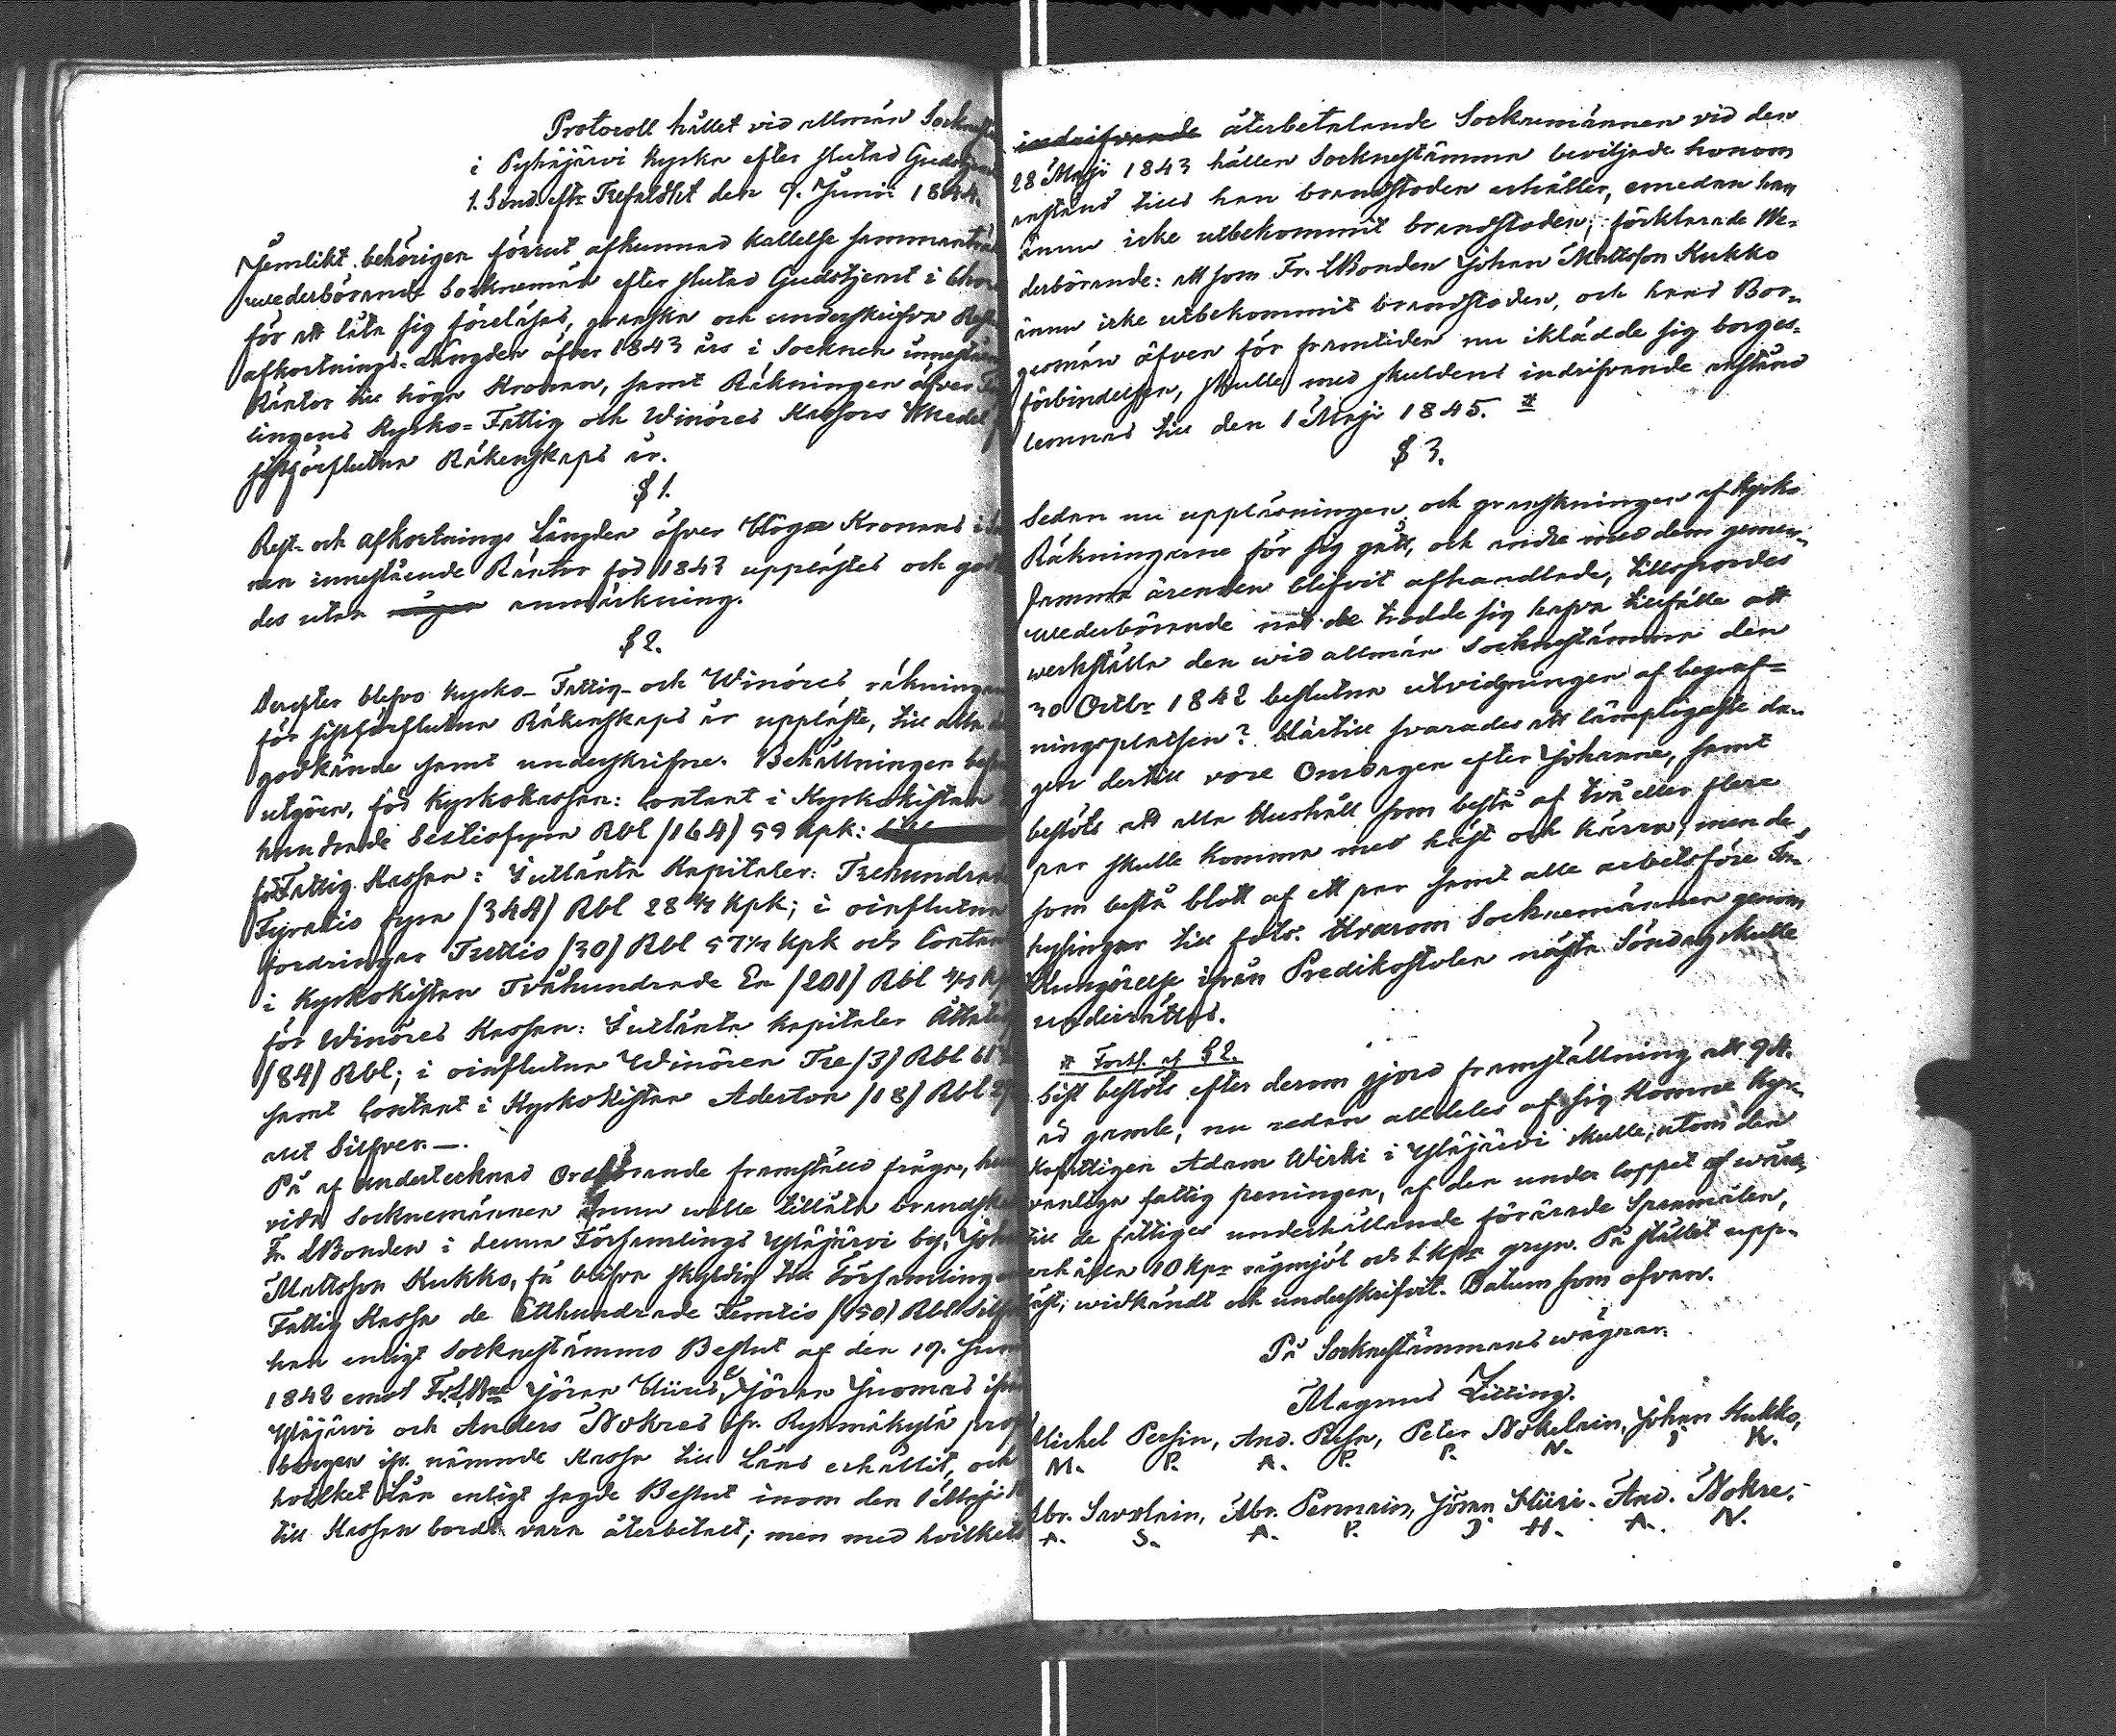 Protocoll hållet vid allmän Socknestä
i Pyhäjärvi Kyrka efter slutad Gudstjenst
1. Sönd. eftr Trefaldht den 9. Junii 1844.
Jemlikt behörigen förrut afkunnad Kallelse sammanträd
wederbörande Socknemän efter slutad Gudstjenst i
för att låta sig föreläsas, granska och underskrifva Rest
afkortnings-Längden öfver 1843 års i Socknen innestående
Räntor till höga Kronan, samt Räkningen öfver För
lingens Kyrko-Fattig och Winöres Kassors Medel f
sistförflutna Räkenskaps år.
§ 1.
Rest- och Afkortnings Längden öfver Höga Kronans i Sock
nen innestående Räntor för 1843 upplästes och godkän
des utan någon anmärkning.
§ 2.
Derefter blefvo Kyrko-Fattig-och Winöres räkningar
för sistförflutna Räkenskaps år uppläste, till alla
godkände samt underskrifne. Behållningen befans
utgöra, för Kyrkokassan: Contant i Kyrkokistan
hundrade Sextiofyra Rbl /164/ 59 Kpk:
för Fattig Kassan: Lutlänta Kapitaler: Trehundrade
Fyratio fyra /344/ Rbl 28 4/7 Kpk; i oinflutna
fordringar Trettio /30/ Rbl 57 1/7 Kpk och Contant
i Kyrkokistan Tvåhundrade En /201/ Rbl
för Winöres Kassan: Lutlänta Kapitaler Åttatio
/84/ Rbl; i oinflutna Winören Tre /3/ Rbl
samt Contant i Kyrkokistan Aderton /18/ Rbl
allt Silfver.—.
På af undertecknad Ordförande framställd fråga, huru
vida Socknemännen ännu wille tillåta brandska
Fr. LBonden i denna Församlings Yläjärvi by, Joha
Mattsson Kukko, få blifva skyldig till Församlingens
Fattig Kassa de Etthundrade Femtio /150/ Rbl Silfver
han enligt Socknestämmo Beslut af den 19. Juni
1842 emot Fr.LBne Jöran Hiiris, Jöran Juomas ifrån
Yläjärvi och Anders Nokres ifr. Rysmäkylä prop
borgen ifr. nämnde Kassa till Låns erhållit, och
hvilket Lån enligt sagde Beslut inom den 1 Maji
till Kassan bordt vara återbetalt; men med hvilkets
indrifvande återbetalande Socknemännen vid den
28 Maji 1843 hållen Socknestämma beviljade honom
anstånd tills han brandstoden erhåller, emedan han
ännu icke utbekommit brandstoden; förklarade We-
derbörande: att som Fr. LBonden Johan Mattsson Kukko
ännu icke utbekommit brandstoden, och hans Bor-
gesmän äfven för framtiden nu iklädde sig borges-
förbindelsen, skulle med skuldens indrifvande anstånd
lemnas till den 1 Maji 1845. #
§ 3.
Sedan nu uppläsningen och granskningen af Kyrko
Räkningarne för sig gått, och andre med dem gemen-
samma ärenden blifvit afhandlade, tillspordes
wederbörande när de trodde sig hafva tillfälle att
werkställa den vid allmän Socknestämma den
30 Octbr 1842 beslutna utvidgningen af begraf-
ningsplatsen? Härtill svarades att lämpligaste da-
gen dertill vore Onsdagen efter Johanne, samt
beslöts att alla Hushåll som bestå af två eller flere
par skulle komma med häst och kärra; men de
som bestå blott af ett par samt alle arbetsföre In-
hysingar till fots. Hvarom Socknemännen genom
Kungörelse ifrån Predikostolen nästa Söndag skulle
underrättas.
# Forts. af § 2.
Sist beslöts efter derom gjord framställning att 94.
år gamle, nu redan alldeles af sig komne Kyr-
kofattigen Adam Wirki i Yläjärvi skulle, utom den
vanliga fattig peningen, af den under loppet af wåren
till de fattiges underhållande förärade Spanmålen,
erhålla 10 Kpr rågmjöl och 1 Kpa gryn. På stället upp-
läst, widkändt och underskrifvit. Datum som ofvan.
På Socknestämmans wägnar:
Magnus Zitting.
Michel Persin, And. Pesn, Peter Nokelain, Johan Kukko,
M. P. A. P. P. N. J K.
Abr. Savolain, Abr. Pennain, Jöran Hiiri. And. Nokre.
A. S. A. P. J H. A. N.